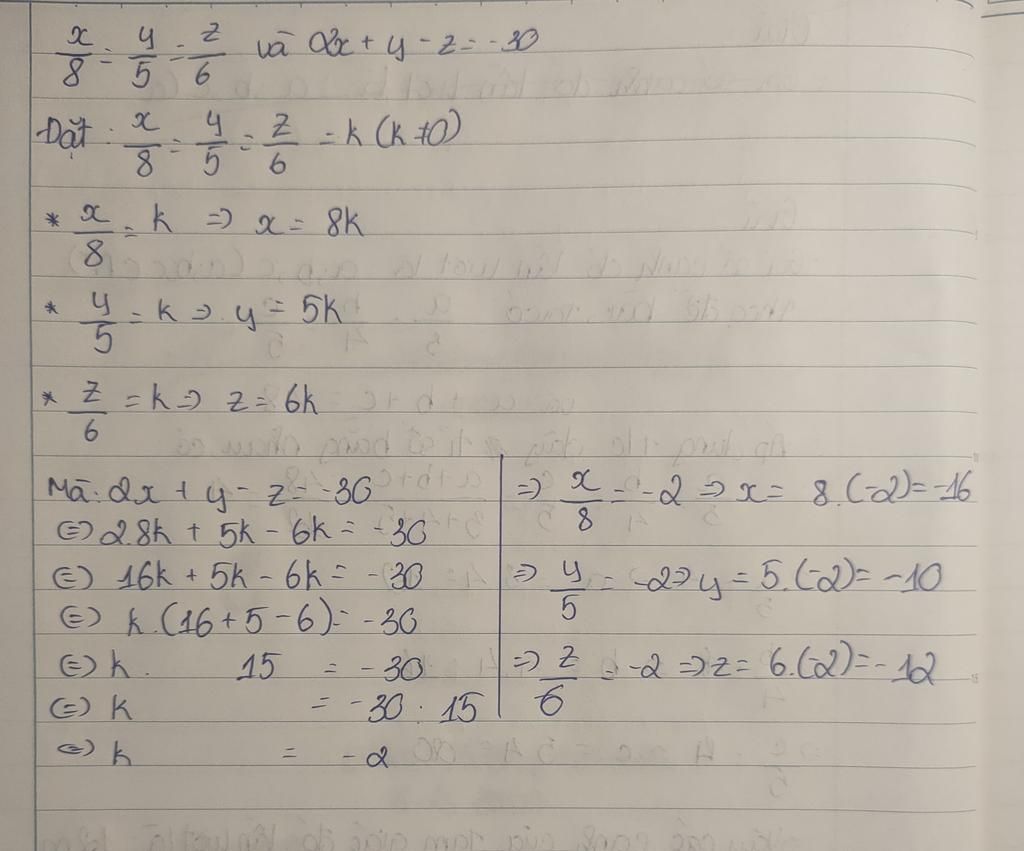 x/8 = y/5 = z/6 và 2x + y - z = -30
Đặt: x/8 = y/5 = z/6 = k (k ≠ 0)
* x/8 = k => x = 8k
* y/5 = k => y = 5k
* z/6 = k => z = 6k
Mà: 2x + y - z = -30
<=> 2.8k + 5k - 6k = -30
<=> 16k + 5k - 6k = -30
<=> k.(16 + 5 - 6) = -30
<=> k. 15 = -30
<=> k = -30 : 15
<=> k = -2
=> x/8 = -2 => x = 8.(-2) = -16
=> y/5 = -2 => y = 5.(-2) = -10
=> z/6 = -2 => z = 6.(-2) = -12